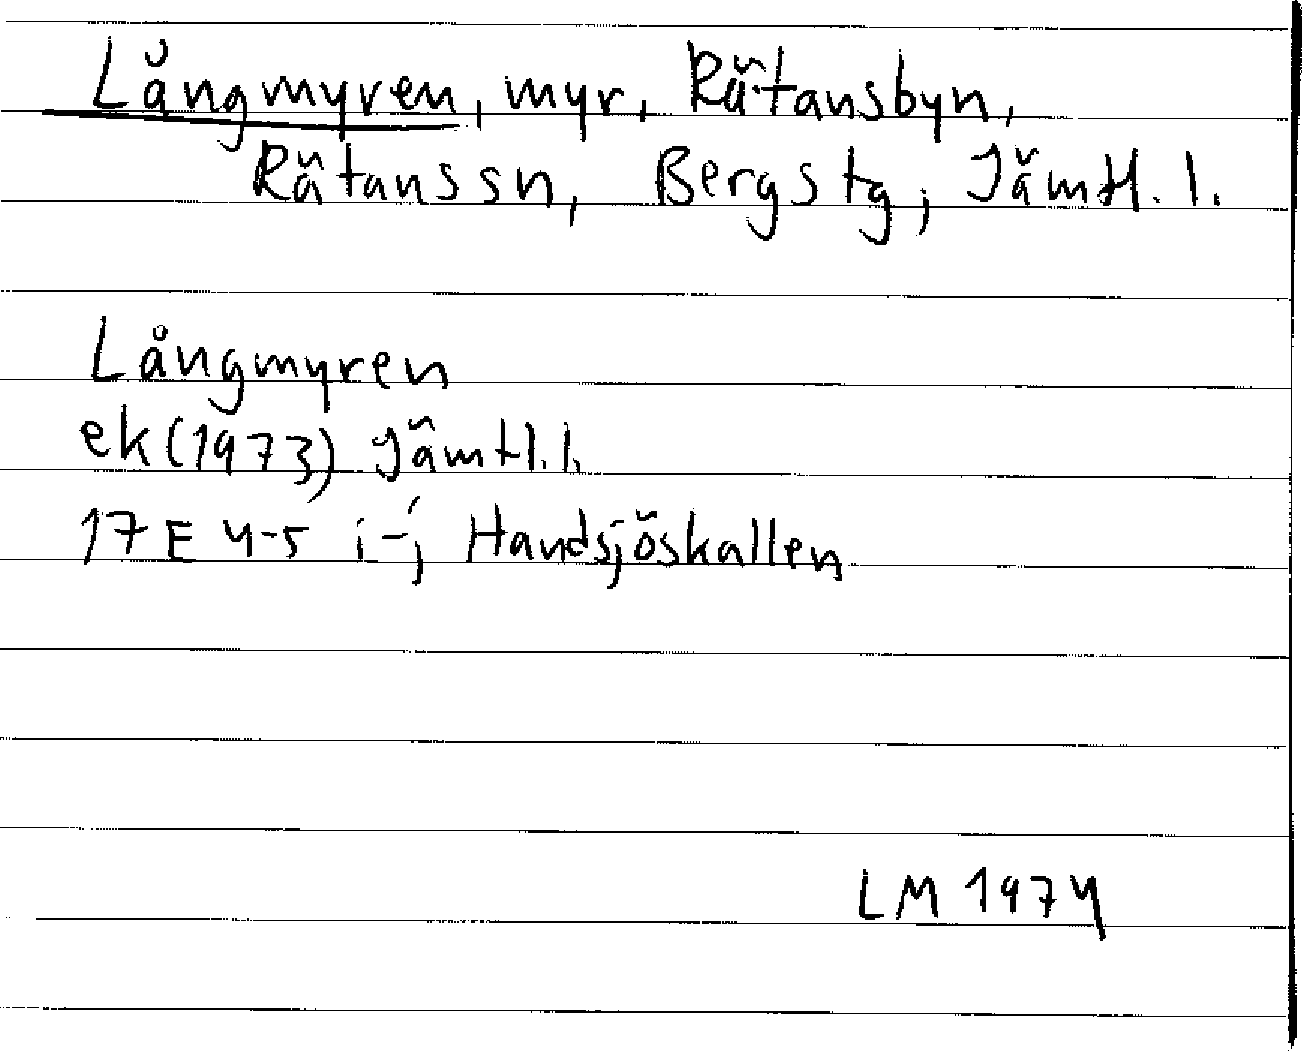 Långmyren, myr, Rätansbyn,
Rätans sn, Bergs tg, Jämtl. l.
Långmyren
ek (1973) Jämtl. l.
17 E 4-5 i-j Handsjöskallen
LM 1974